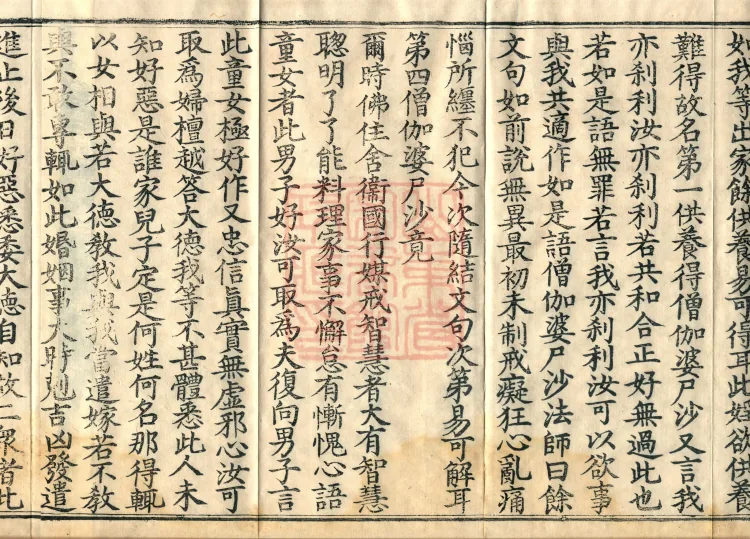 好我等出家餘供養易可得耳此婬欲供養
難得故名第一供養得僧伽婆尸沙又言我
亦剎利汝亦剎利若共和合正好無過此也
若如是語無罪若言我亦剎利汝可以欲事
與我共適作如是語僧伽婆尸沙法師曰餘
文句如前說無異最初未制戒癡狂心亂痛
惱所纏不犯今次隨結文句次第易可解耳
第四僧伽婆尸沙竟
爾時佛住舍衞國行媒戒智慧者大有智慧
聰明了了能料理家事不懈怠有慚愧心語
童女者此男子好汝可取爲夫復向男子言
此童女極好作又忠信眞實無虛邪心汝可
取爲婦檀越答大德我等不甚體悉此人未
知好惡是誰家兒子定是何姓何名那得輒
以女相與若大德教我與我當遣嫁若不教
與不敢專輒如此婚姻事大時剋吉凶發遣
進止後日好惡悉委大德自知故二衆者此